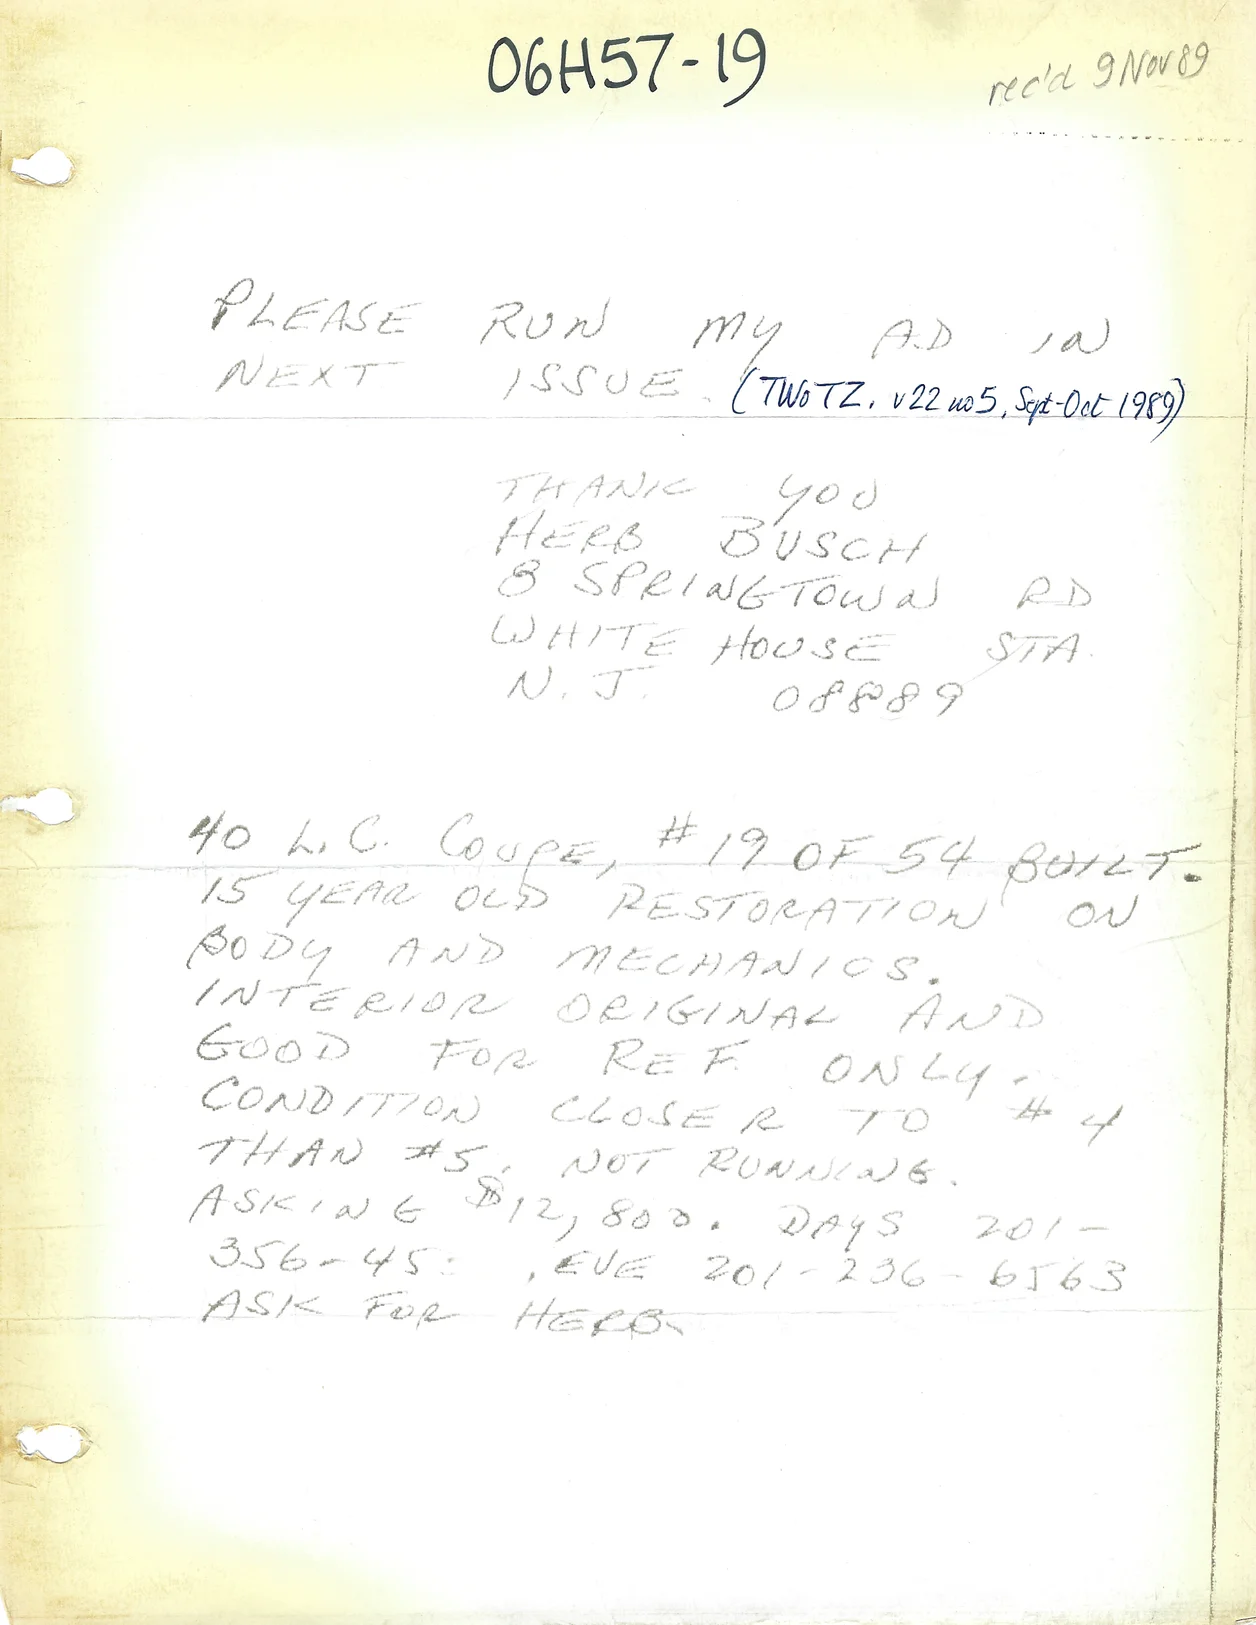 06H57-19
rec'd 9 Nov 89
PLEASE RUN MY AD IN
NEXT ISSUE. (TWoTZ, v22 no5, Sept-Oct 1989)
THANK YOU
HERB BUSCH
8 SPRINGTOWN RD
WHITE HOUSE STA.
N.J. 08889
40 L.C. COUPE, #19 OF 54 BUILT.
15 YEAR OLD RESTORATION ON
BODY AND MECHANICS.
INTERIOR ORIGINAL AND
GOOD FOR REF. ONLY.
CONDITION CLOSER TO #4
THAN #5. NOT RUNNING.
ASKING $12,800. DAYS 201-
356-45 , EVE 201-236-6563
ASK FOR HERB.